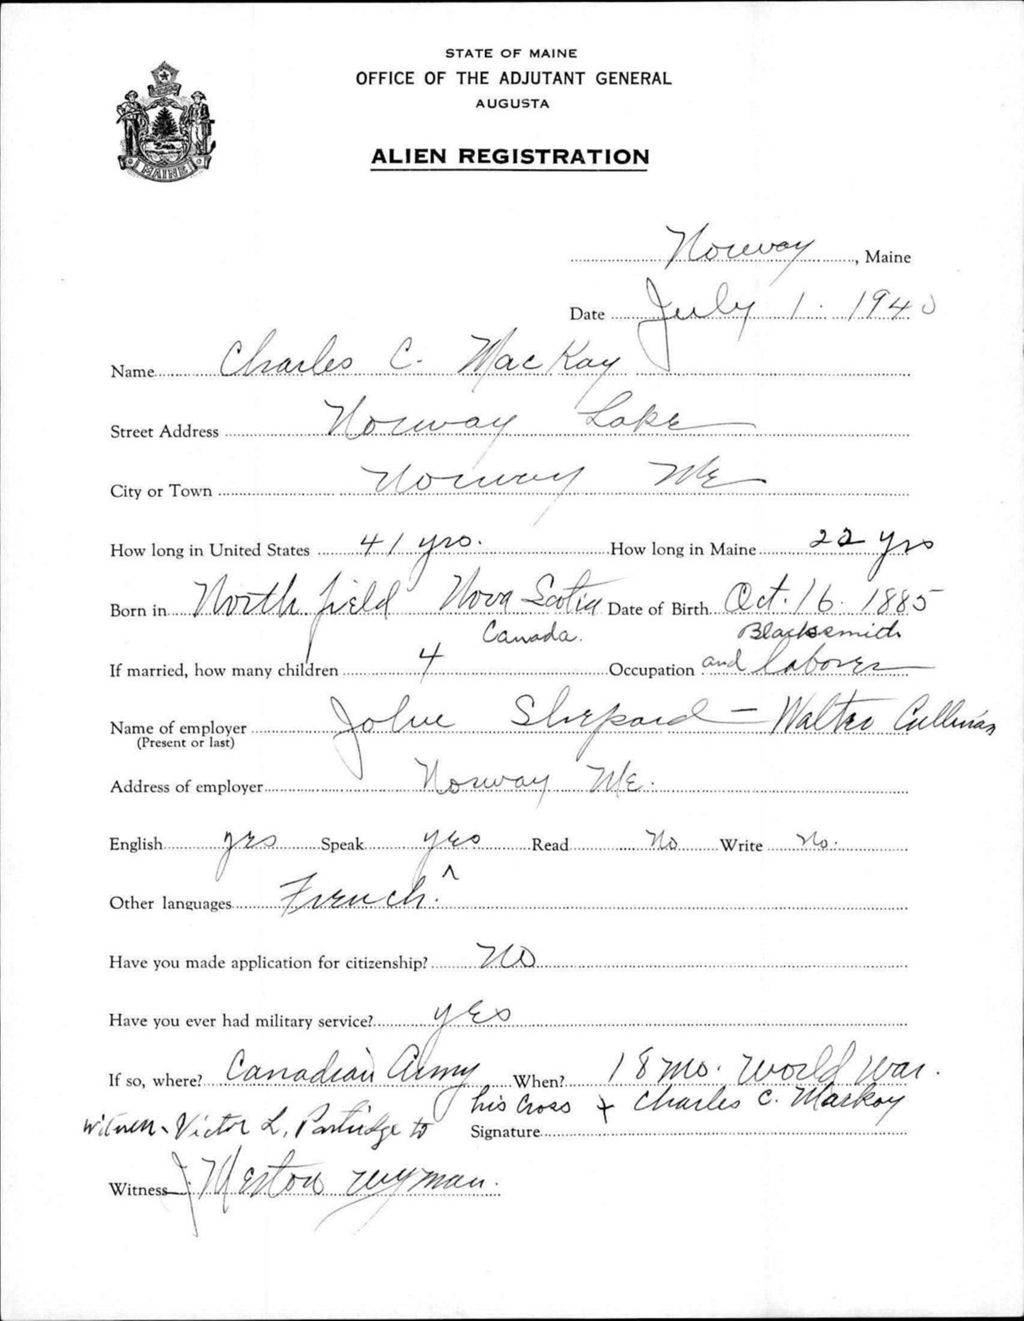 STATE OF MAINE
OFFICE OF THE ADJUTANT GENERAL
AUGUSTA
ALIEN REGISTRATION
MAINE
Norway, Maine
Date July 1. 1940
Name Charles C. MacKay
Street Address Norway Lake
City or Town Norway Me
How long in United States 41 yrs. How long in Maine 22 yrs
Born in Northfield Nova Scotia Date of Birth Oct. 16. 1885
Canada. Blacksmith
If married, how many children 4 Occupation and laborer
Name of employer John Shepard - Walter Cullinan
(Present or last)
Address of employer Norway Me.
English yes Speak yes Read No Write No.
Other languages French. ^
Have you made application for citizenship? No
Have you ever had military service? yes
If so, where? Canadian Army When? 18 mo. World War.
his Cross + Charles C. Mackay
Witness Victor L. Partridge to Signature
Witness J. Merton Wyman.